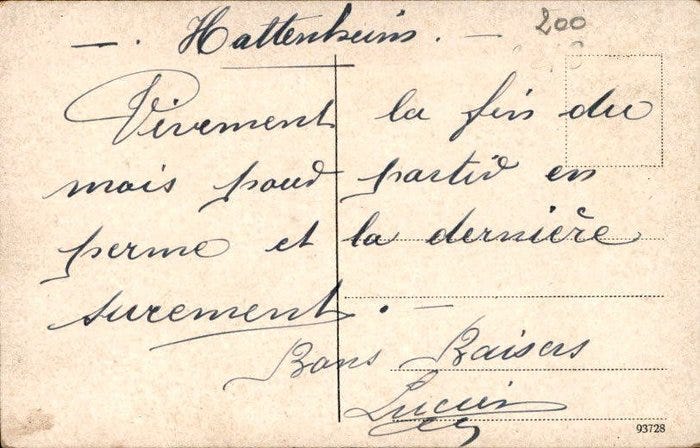 — . Hattenheim . — 200
Vivement la fin du
mois pour partir en
perme et la dernière
surement. —
Bons Baisers
Lucien
93728